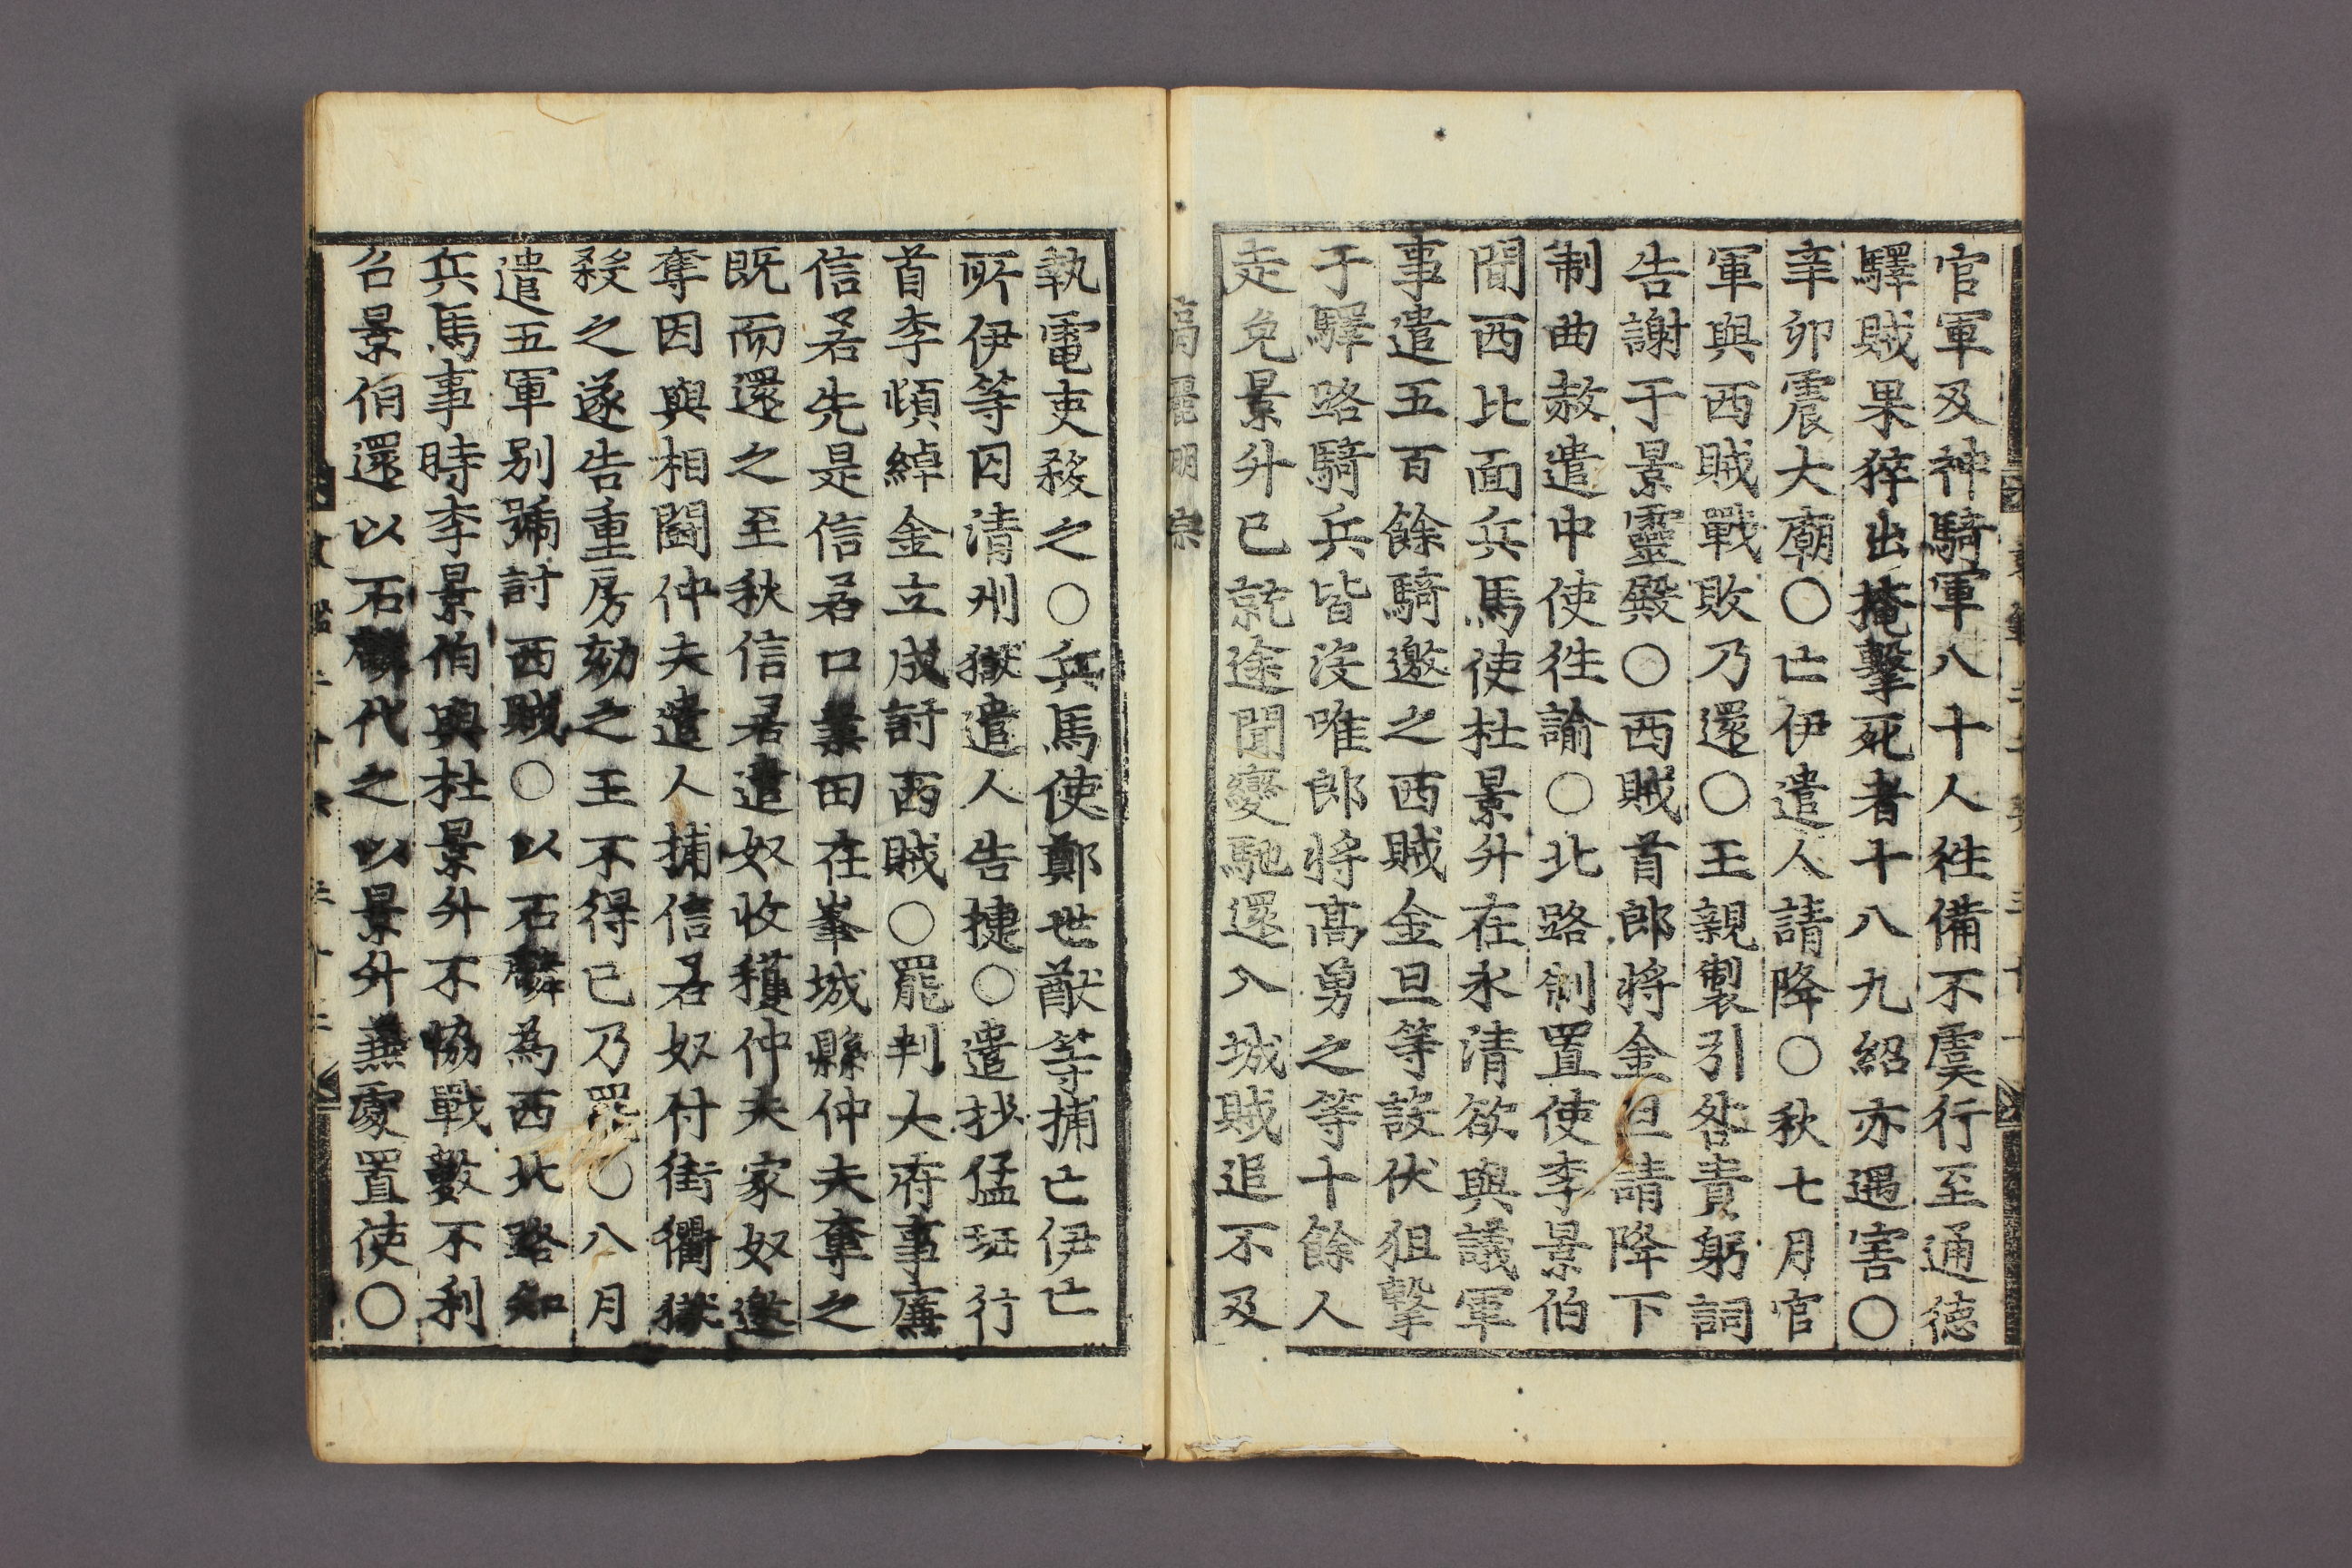 官軍及神騎軍八十人徃備不虞行至通德
驛賊果猝出掩擊死者十八九紹亦遇害○
辛卯震大廟○亡伊遣人請降○秋七月官
軍與西賊戰敗乃還○王親製引咎責躬詞
告謝于景靈殿○西賊首郎將金旦請降下
制曲赦遣中使徃諭○北路制置使李景伯
聞西北面兵馬使杜景升在永清欲與議軍
事遣五百餘騎邀之西賊金旦等設伏狙擊
于驛路騎兵皆沒唯郎將高勇之等十餘人
走免景升已就途聞變馳還入城賊追不及
高麗明宗
執電吏殺之○兵馬使鄭世猷等捕亡伊亡
所伊等囚清州獄遣人告捷○遣抄猛班行
首李頓綽金立成討西賊○罷判大府事廉
信若先是信若口業田在峯城縣仲夫奪之
既而還之至秋信若遣奴收穫仲夫家奴邀
奪因與相鬪仲夫遣人捕信若奴付街衢獄
殺之遂告重房劾之王不得已乃罷○八月
遣五軍別號討西賊○以石隣為西北路知
兵馬事時李景伯與杜景升不恊戰數不利
召景伯還以石隣代之以景升兼處置使○